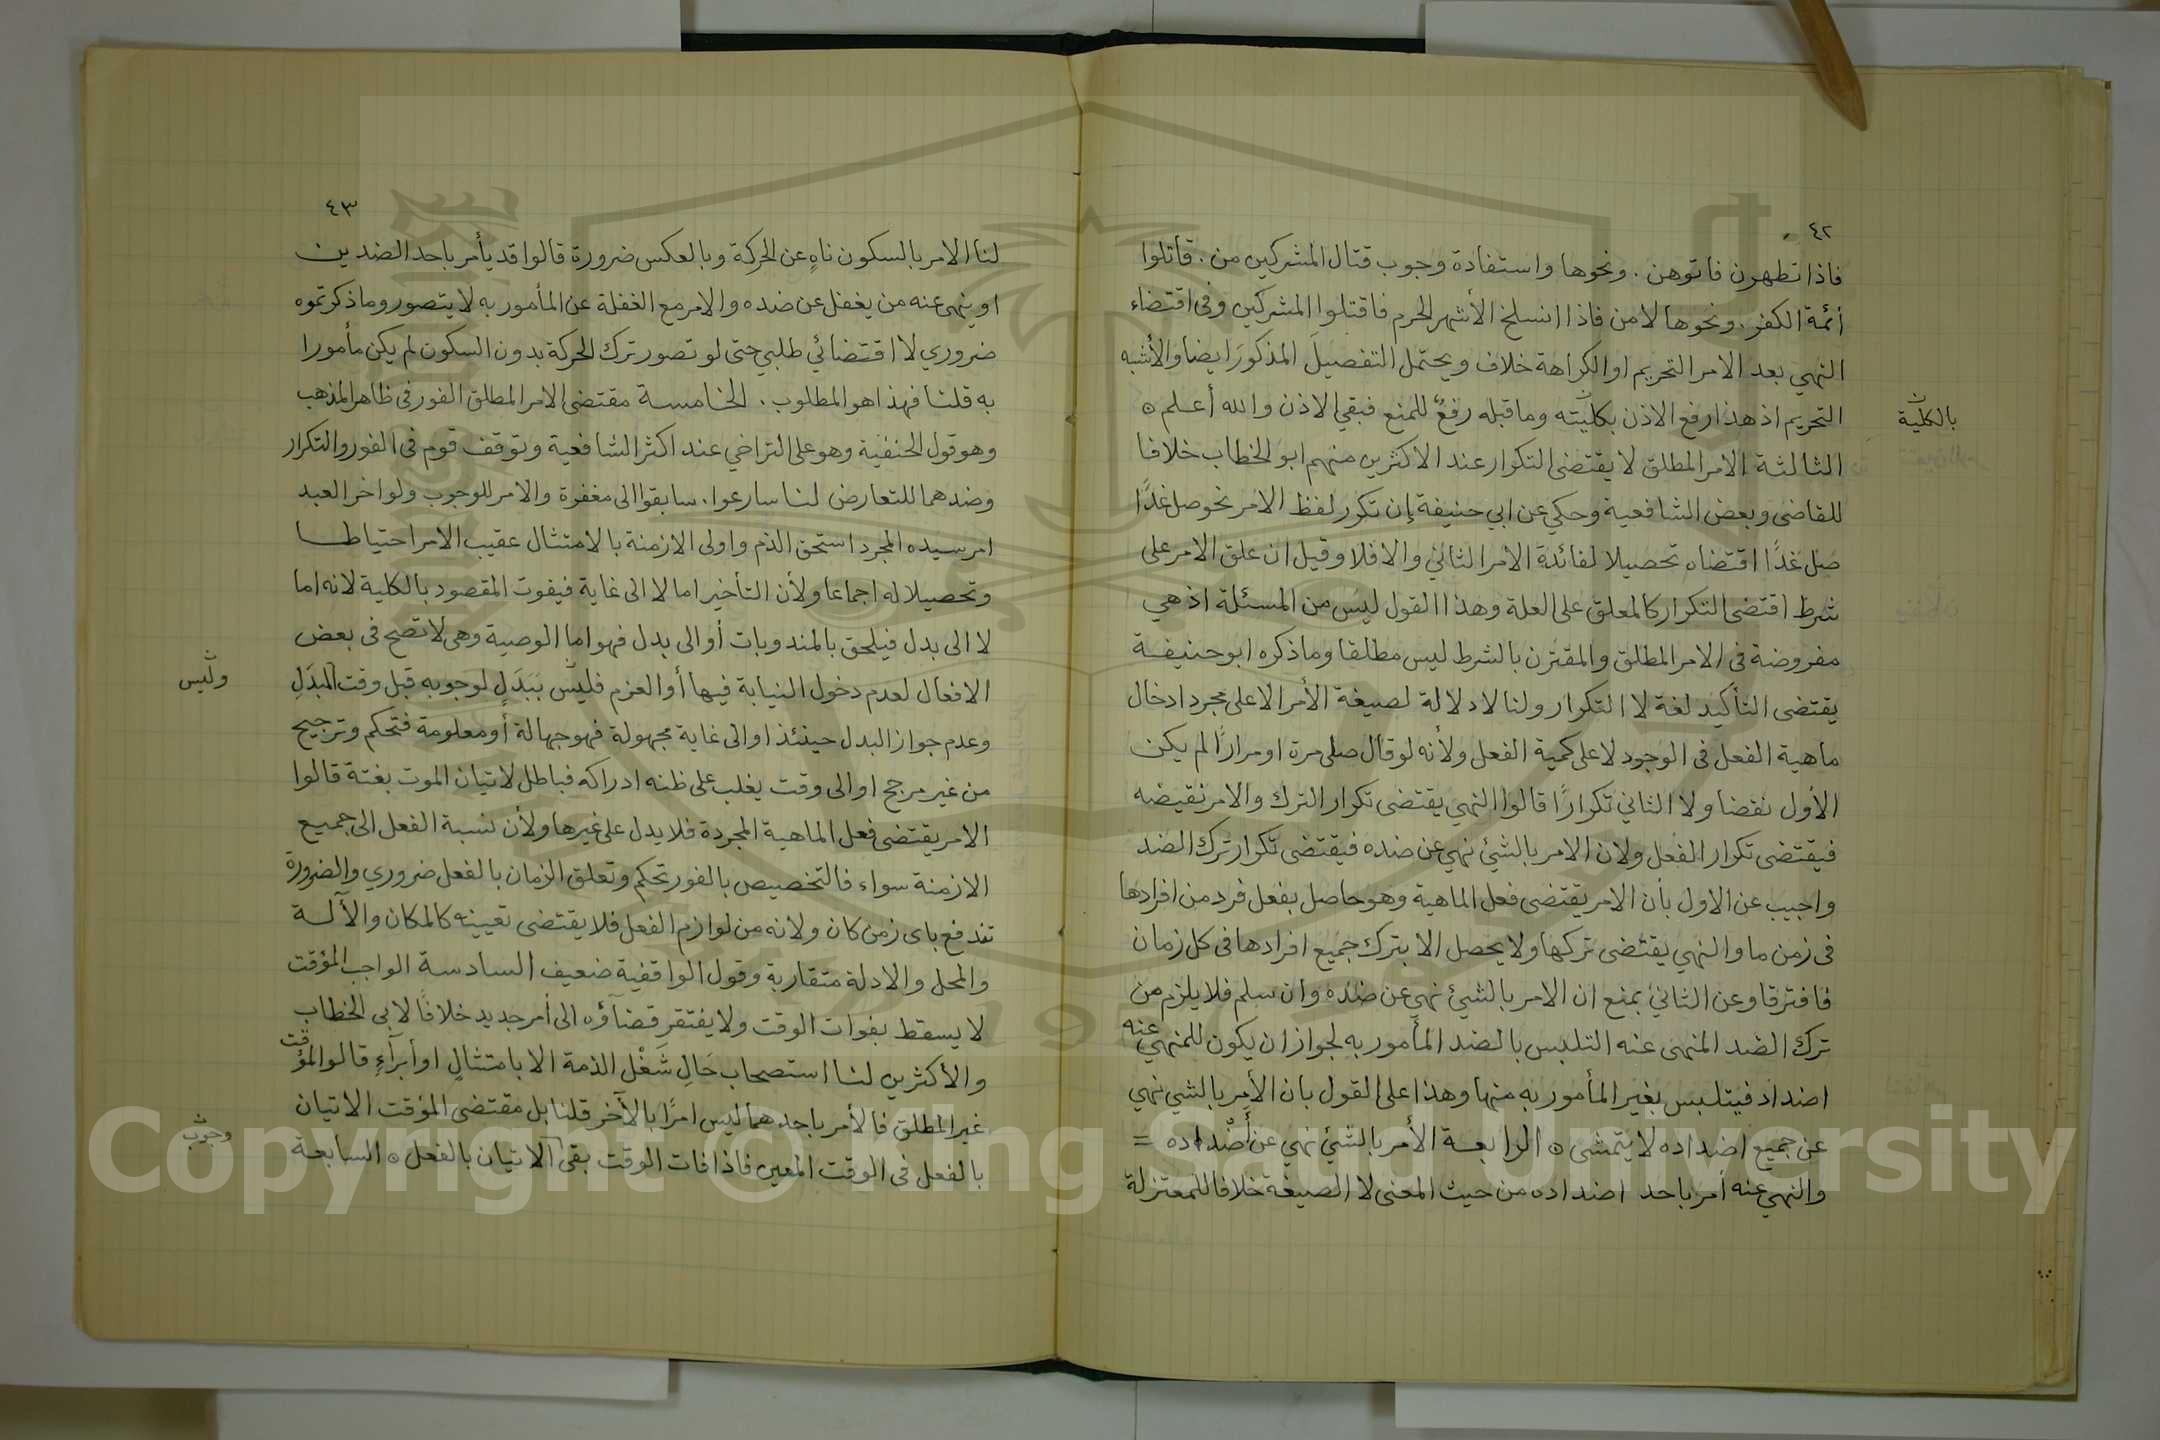 ٤٢
فاذا تطهرن فاتوهن . ونحوها واستفادة وجوب قتال المشركين من . قاتلوا
أئمة الكفر . ونحوها لا من فاذا انسلخ الأشهر الحرم فاقتلوا المشركين وفى اقتضاء
النهي بعد الامر التحريم او الكراهة خلاف ويحتمل التفصيلَ المذكورَ ايضا والأشبه
التحريم اذ هذا رفع الاذن بكليّته وما قبله رفعٌ للمنع فبقي الاذن والله أعلم ٥
بالكليّة
الثالثة الامر المطلق لا يقتضى التكرار عند الاكثرين منهم ابو الخطاب خلافا
للقاضى وبعض الشافعية وحكي عن ابي حنيفة إن تكرر لفظ الامر نحو صل غدًا
صل غدًا اقتضاه تحصيلا لفائدة الامر الثاني والا فلا وقيل ان علق الامر على
شرط اقتضى التكرار كالمعلق على العلة وهذا القول ليس من المسئلة اذ هي
مفروضة فى الامر المطلق والمقترن بالشرط ليس مطلقا وما ذكره ابو حنيفة
يقتضى التأكيد لغة لا التكرار ولنا لا دلالة لصيغة الأمر الا على مجرد ادخال
ماهية الفعل فى الوجود لا على كمية الفعل ولأنه لو قال صلى مرة او مرارًا لم يكن
الأول نقضا ولا الثاني تكرارًا قالوا النهي يقتضى تكرار الترك والامر نقيضه
فيقتضى تكرار الفعل ولان الامر بالشئ نهي عن ضده فيقتضى تكرار ترك الضد
واجيب عن الاول بأن الامر يقتضى فعل الماهية وهو حاصل بفعل فرد من افرادها
فى زمن ما والنهي يقتضى تركها ولا يحصل الا بترك جميع افرادها فى كل زمان
فافترقا وعن الثاني بمنع ان الامر بالشيئ نهي عن ضده وان سلم فلا يلزم من
ترك الضد المنهى عنه التلبس بالضد المأمور به لجواز ان يكون للمنهي عنه
اضداد فيتلبس بغير المأمور به منها وهذا على القول بان الأمر بالشي نهي
عن جميع اضداده لا يتمشى ٥ الرابعة الأمر بالشئ نهي عن أضداده =
والنهي عنه أمر باحد اضداده من حيث المعنى لا الصيغة خلافا للمعتزلة
٤٣
لنا الامر بالسكون ناهٍ عن الحركة وبالعكس ضرورة قالوا قد يأمر باحد الضدين
او ينهى عنه من يغفل عن ضده والامر مع الغفلة عن المأمور به لا يتصور وما ذكرتموه
ضروري لا اقتضائي طلبي حتى لو تصور ترك الحركة بدون السكون لم يكن مأمورا
به قلنا فهذا هو المطلوب . الخامسة مقتضى الامر المطلق الفور فى ظاهر المذهب
وهو قول الحنفية وهو على التراخي عند اكثر الشافعية وتوقف قوم فى الفور والتكرار
وضدهما للتعارض لنا سارعوا . سابقوا الى مغفرة والامر للوجوب ولو اخر العبد
امر سيده المجرد استحق الذم واولى الازمنة بالامتثال عقيب الامر احتياطا
وتحصيلا له اجماعا ولأن التأخير اما لا الى غاية فيفوت المقصود بالكلية لانه اما
لا الى بدل فيلحق بالمندوبات أو الى بدل فهو اما الوصية وهى لا تصح فى بعض
الافعال لعدم دخول النيابة فيها أو العزم فليس بَبَدَلٍ لوجوبه قبل وقت المبدَلِ
وليس
وعدم جواز البدل حينئذ او الى غاية مجهولة فهو جهالة أو معلومة فتحكم وترجيح
من غير مرجح او الى وقت يغلب على ظنه ادراكه فباطل لاتيان الموت بغتة قالوا
الامر يقتضى فعل الماهية المجردة فلا يدل على غيرها ولأن نسبة الفعل الى جميع
الازمنة سواء فالتخصيص بالفور تحكم وتعلق الزمان بالفعل ضروري والضرورة
تندفع باى زمن كان ولانه من لوازم الفعل فلا يقتضى تعيينه كالمكان والآلة
والمحل والادلة متقاربة وقول الواقفية ضعيف السادسة الواجب المؤقت
لا يسقط بفوات الوقت ولا يفتقر قضآؤه الى أمر جديد خلافًا لابى الخطاب
والأكثرين لنا استصحاب حَالِ شَغْل الذمة الا بامتثالٍ او أبرآءٍ قالوا المؤقت
غير المطلق فالأمر باحدهما ليس امرًا بالآخر قلنا بل مقتضى المؤقت الاتيان
وجوب
بالفعل فى الوقت المعين فاذا فات الوقت بقى الاتيان بالفعل ٥ السابعة
Copyright © King Saud University